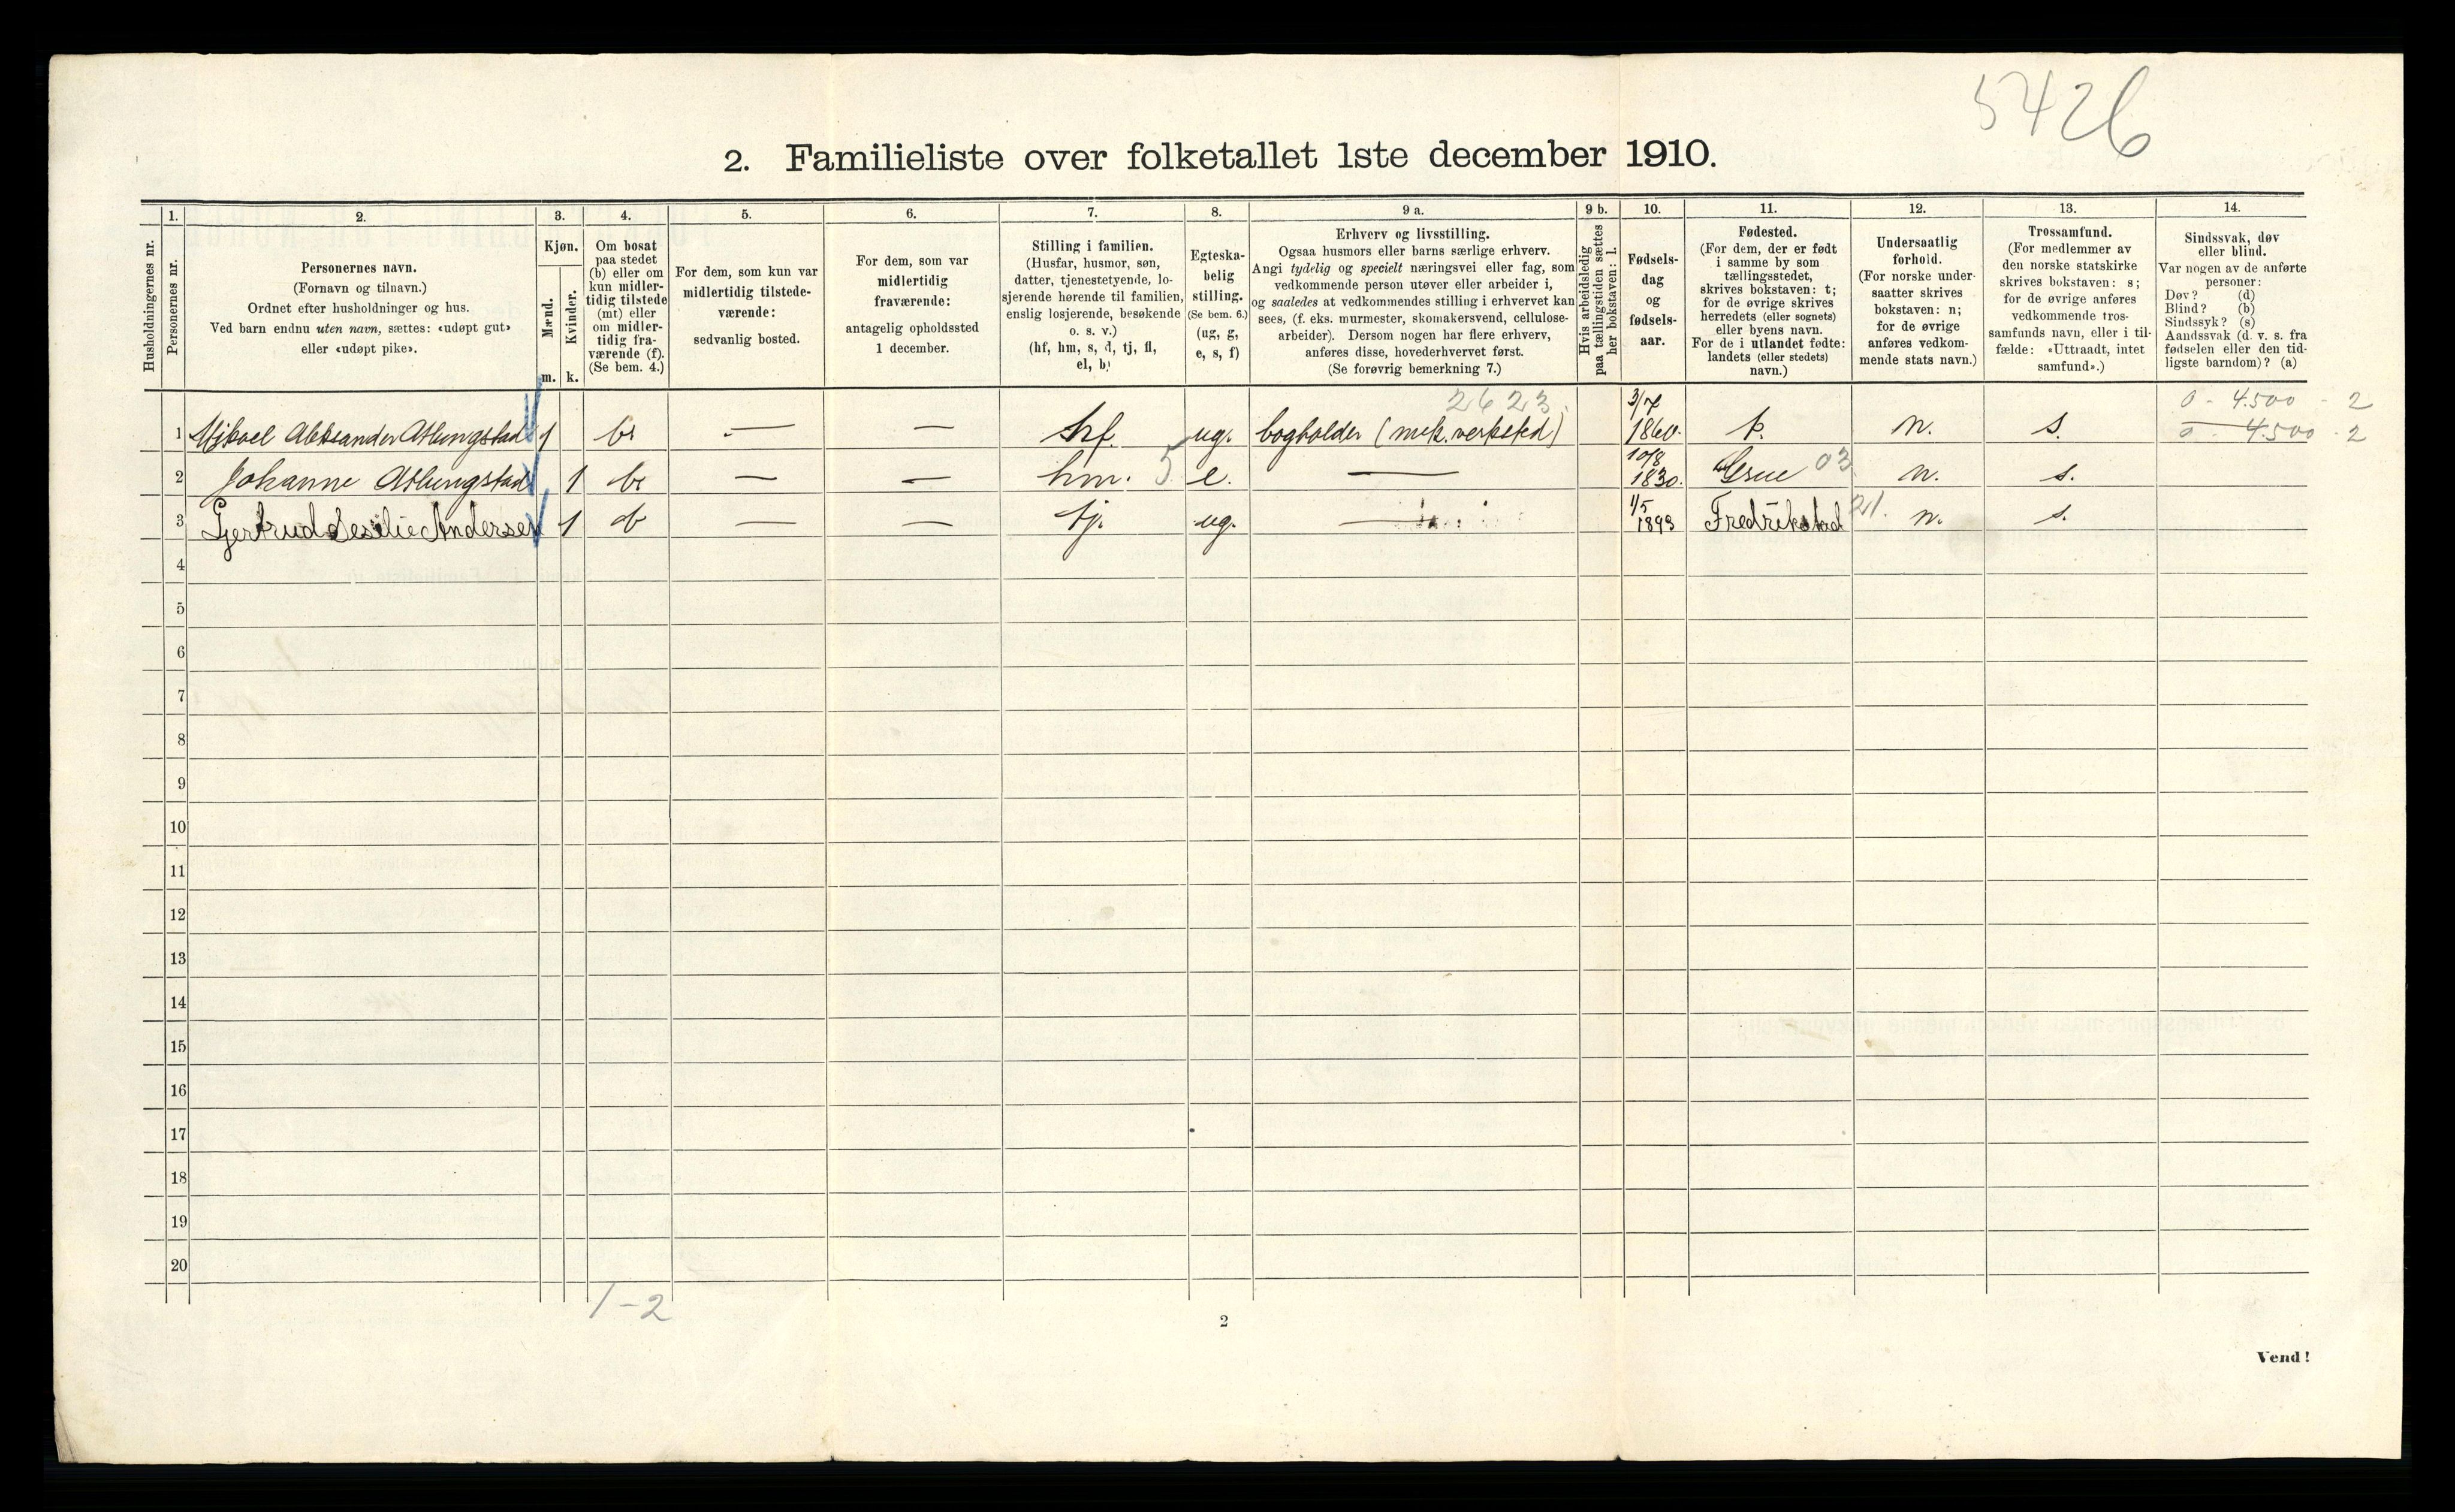 5426
2. Familieliste over folketallet 1ste december 1910.
Husholdningernes nr.
1.
Personernes nr.
2.
Personernes navn.
(Fornavn og tilnavn.)
Ordnet efter husholdninger og hus.
Ved barn endnu uten navn, sættes: «udøpt gut»
eller «udøpt pike».
3.
Kjøn.
Mænd.
Kvinder.
m. k.
4.
Om bosat
paa stedet
(b) eller om
kun midler-
tidig tilstede
(mt) eller
om midler-
tidig fra-
værende (f).
(Se bem. 4.)
5.
For dem, som kun var
midlertidig tilstede-
værende:
sedvanlig bosted.
6.
For dem, som var
midlertidig
fraværende:
antagelig opholdssted
1 december.
7.
Stilling i familien.
(Husfar, husmor, søn,
datter, tjenestetyende, lo-
sjerende hørende til familien,
enslig losjerende, besøkende
o. s. v.)
(hf, hm, s, d, tj, fl,
el, b)
8.
Egteska-
belig
stilling.
(Se bem. 6.)
(ug, g,
e, s, f)
9 a.
Erhverv og livsstilling.
Ogsaa husmors eller barns særlige erhverv.
Angi tydelig og specielt næringsvei eller fag, som
vedkommende person utøver eller arbeider i,
og saaledes at vedkommendes stilling i erhvervet kan
sees, (f. eks. murmester, skomakersvend, cellulose-
arbeider). Dersom nogen har flere erhverv,
anføres disse, hovederhvervet først.
(Se forøvrig bemerkning 7.)
9 b.
Hvis arbeidsledig
paa tællingstiden sættes
her bokstaven: l.
10.
Fødsels-
dag
og
fødsels-
aar.
11.
Fødested.
(For dem, der er født
i samme by som
tællingsstedet,
skrives bokstaven: t;
for de øvrige skrives
herredets (eller sognets)
eller byens navn.
For de i utlandet fødte:
landets (eller stedets)
navn.)
12.
Undersaatlig
forhold.
(For norske under-
saatter skrives
bokstaven: n;
for de øvrige
anføres vedkom-
mende stats navn.)
13.
Trossamfund.
(For medlemmer av
den norske statskirke
skrives bokstaven: s;
for de øvrige anføres
vedkommende tros-
samfunds navn, eller i til-
fælde: «Uttraadt, intet
samfund».)
14.
Sindssvak, døv
eller blind.
Var nogen av de anførte
personer:
Døv? (d)
Blind? (b)
Sindssyk? (s)
Aandssvak (d. v. s. fra
fødselen eller den tid-
ligste barndom)? (a)
2623. 3/7 0 - 4.500 - 2
1 Mikael Aleksander Atlungstad 1 b — — hf. ug. bogholder (mek. verksted) 1860. t. n. s. 0 - 4.500 - 2
2 Johanne Atlungstad 1 b — — hm. 5 e. — 10/8 1830. Grue 03 n. s.
3 Gjertrud Sesilie Andersen 1 b — — tj. ug. — 1/5 1893 Fredrikstad 21. n. s.
4
5
6
7
8
9
10
11
12
13
14
15
16
17
18
19
20
1 - 2
2
Vend!